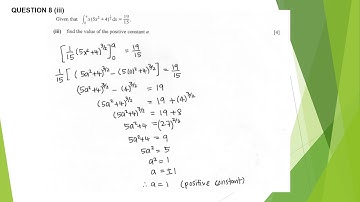 QUESTION 8 (iii)
Given that ∫₀ᵃ x(5x²+4)^½ dx = 19/15,
(iii) find the value of the positive constant a. [4]
[1/15 (5x²+4)^3/2]₀ᵃ = 19/15
1/15 [(5a²+4)^3/2 - (5(0)²+4)^3/2] = 19/15
(5a²+4)^3/2 - (4)^3/2 = 19
(5a²+4)^3/2 = 19 + (4)^3/2
(5a²+4)^3/2 = 19 + 8
5a²+4 = (27)^2/3
5a²+4 = 9
5a² = 5
a² = 1
a = ±1
∴ a = 1 (positive constant)